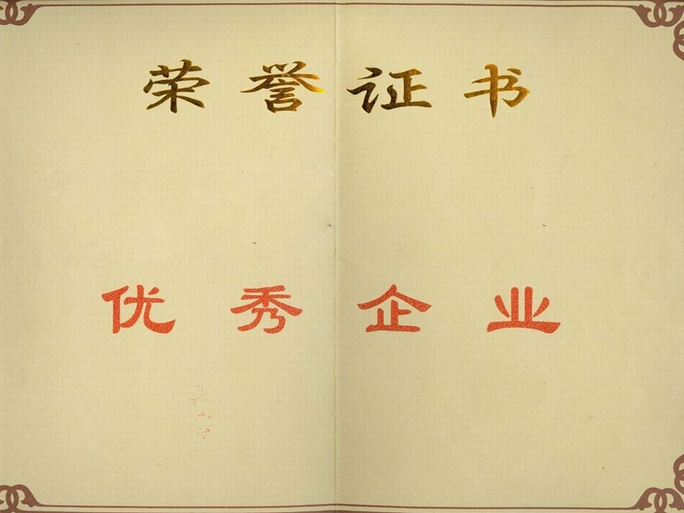 荣誉证书
优秀企业